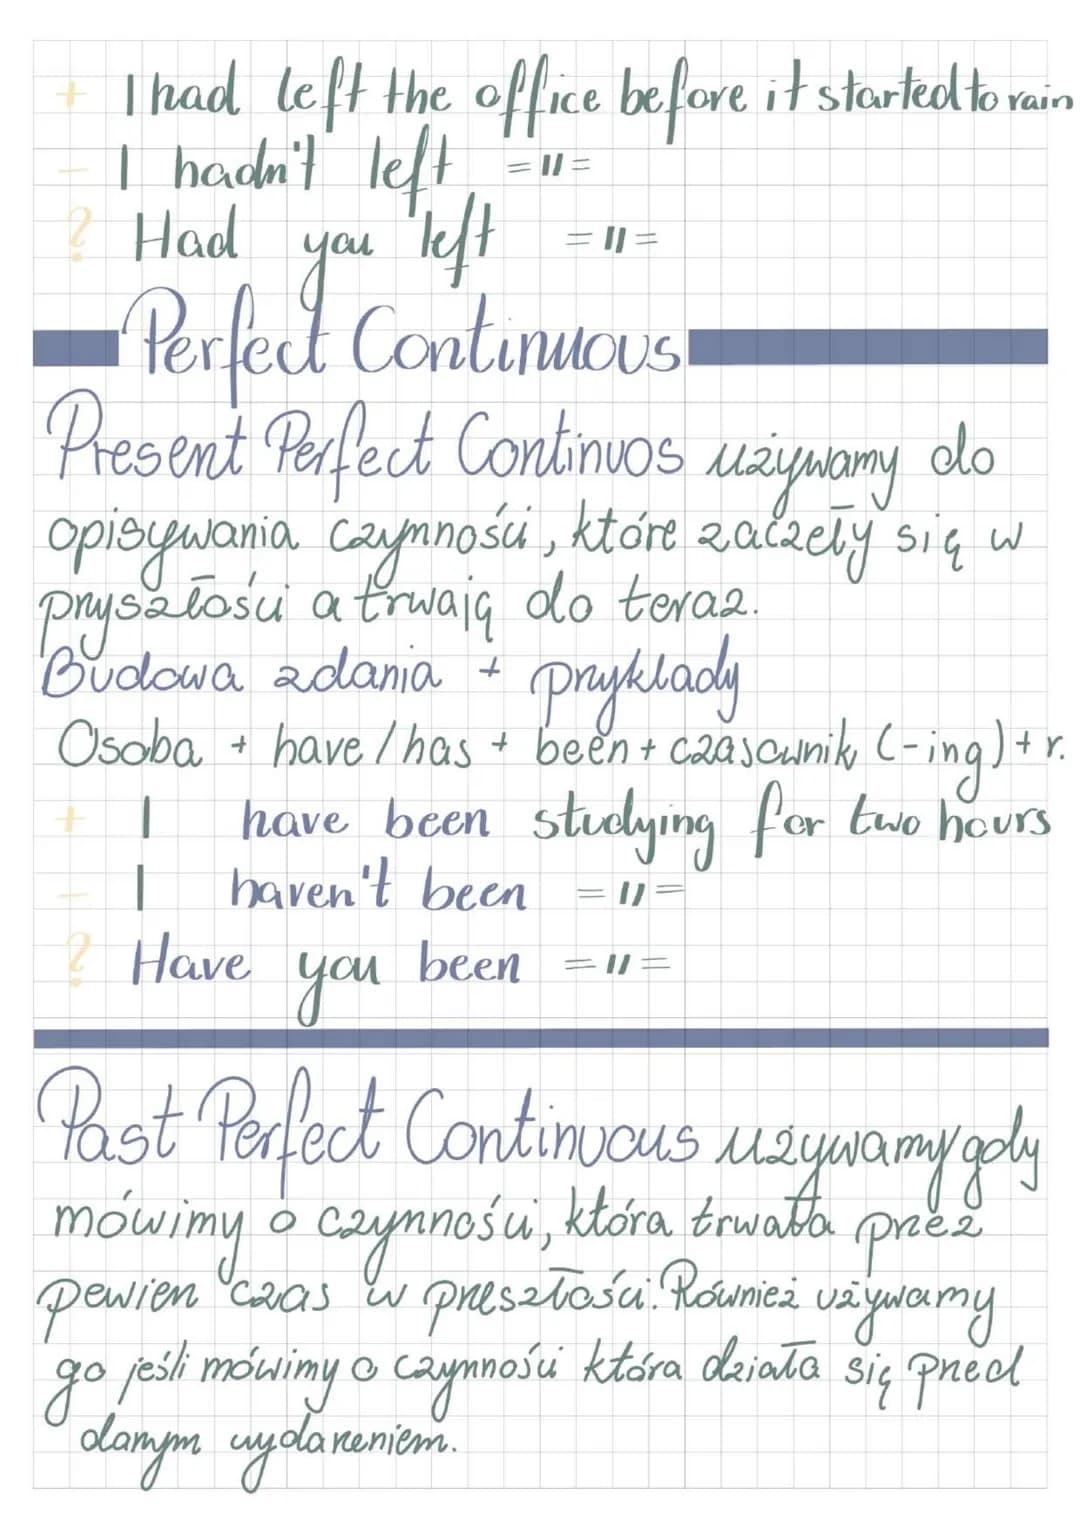 + I had left the office before it started to rain
- I hadn't left =11=
? Had you left =11=
Perfect Continuous
Present Perfect Continuos używamy do
opisywania czynności, które zaczęły się w
pryszłości a trwają do teraz.
Budowa zdania + pryklady
Osoba + have/has + been + czasownik (-ing) + r.
+ I have been studying for two hours
- I haven't been =11=
? Have you been =11=
Past Perfect Continuous używamy gdy
mówimy o czynności, która trwała przez
pewien czas w preszłości. Również używamy
go jeśli mówimy o czynności która działa się pred
danym wydareniem.